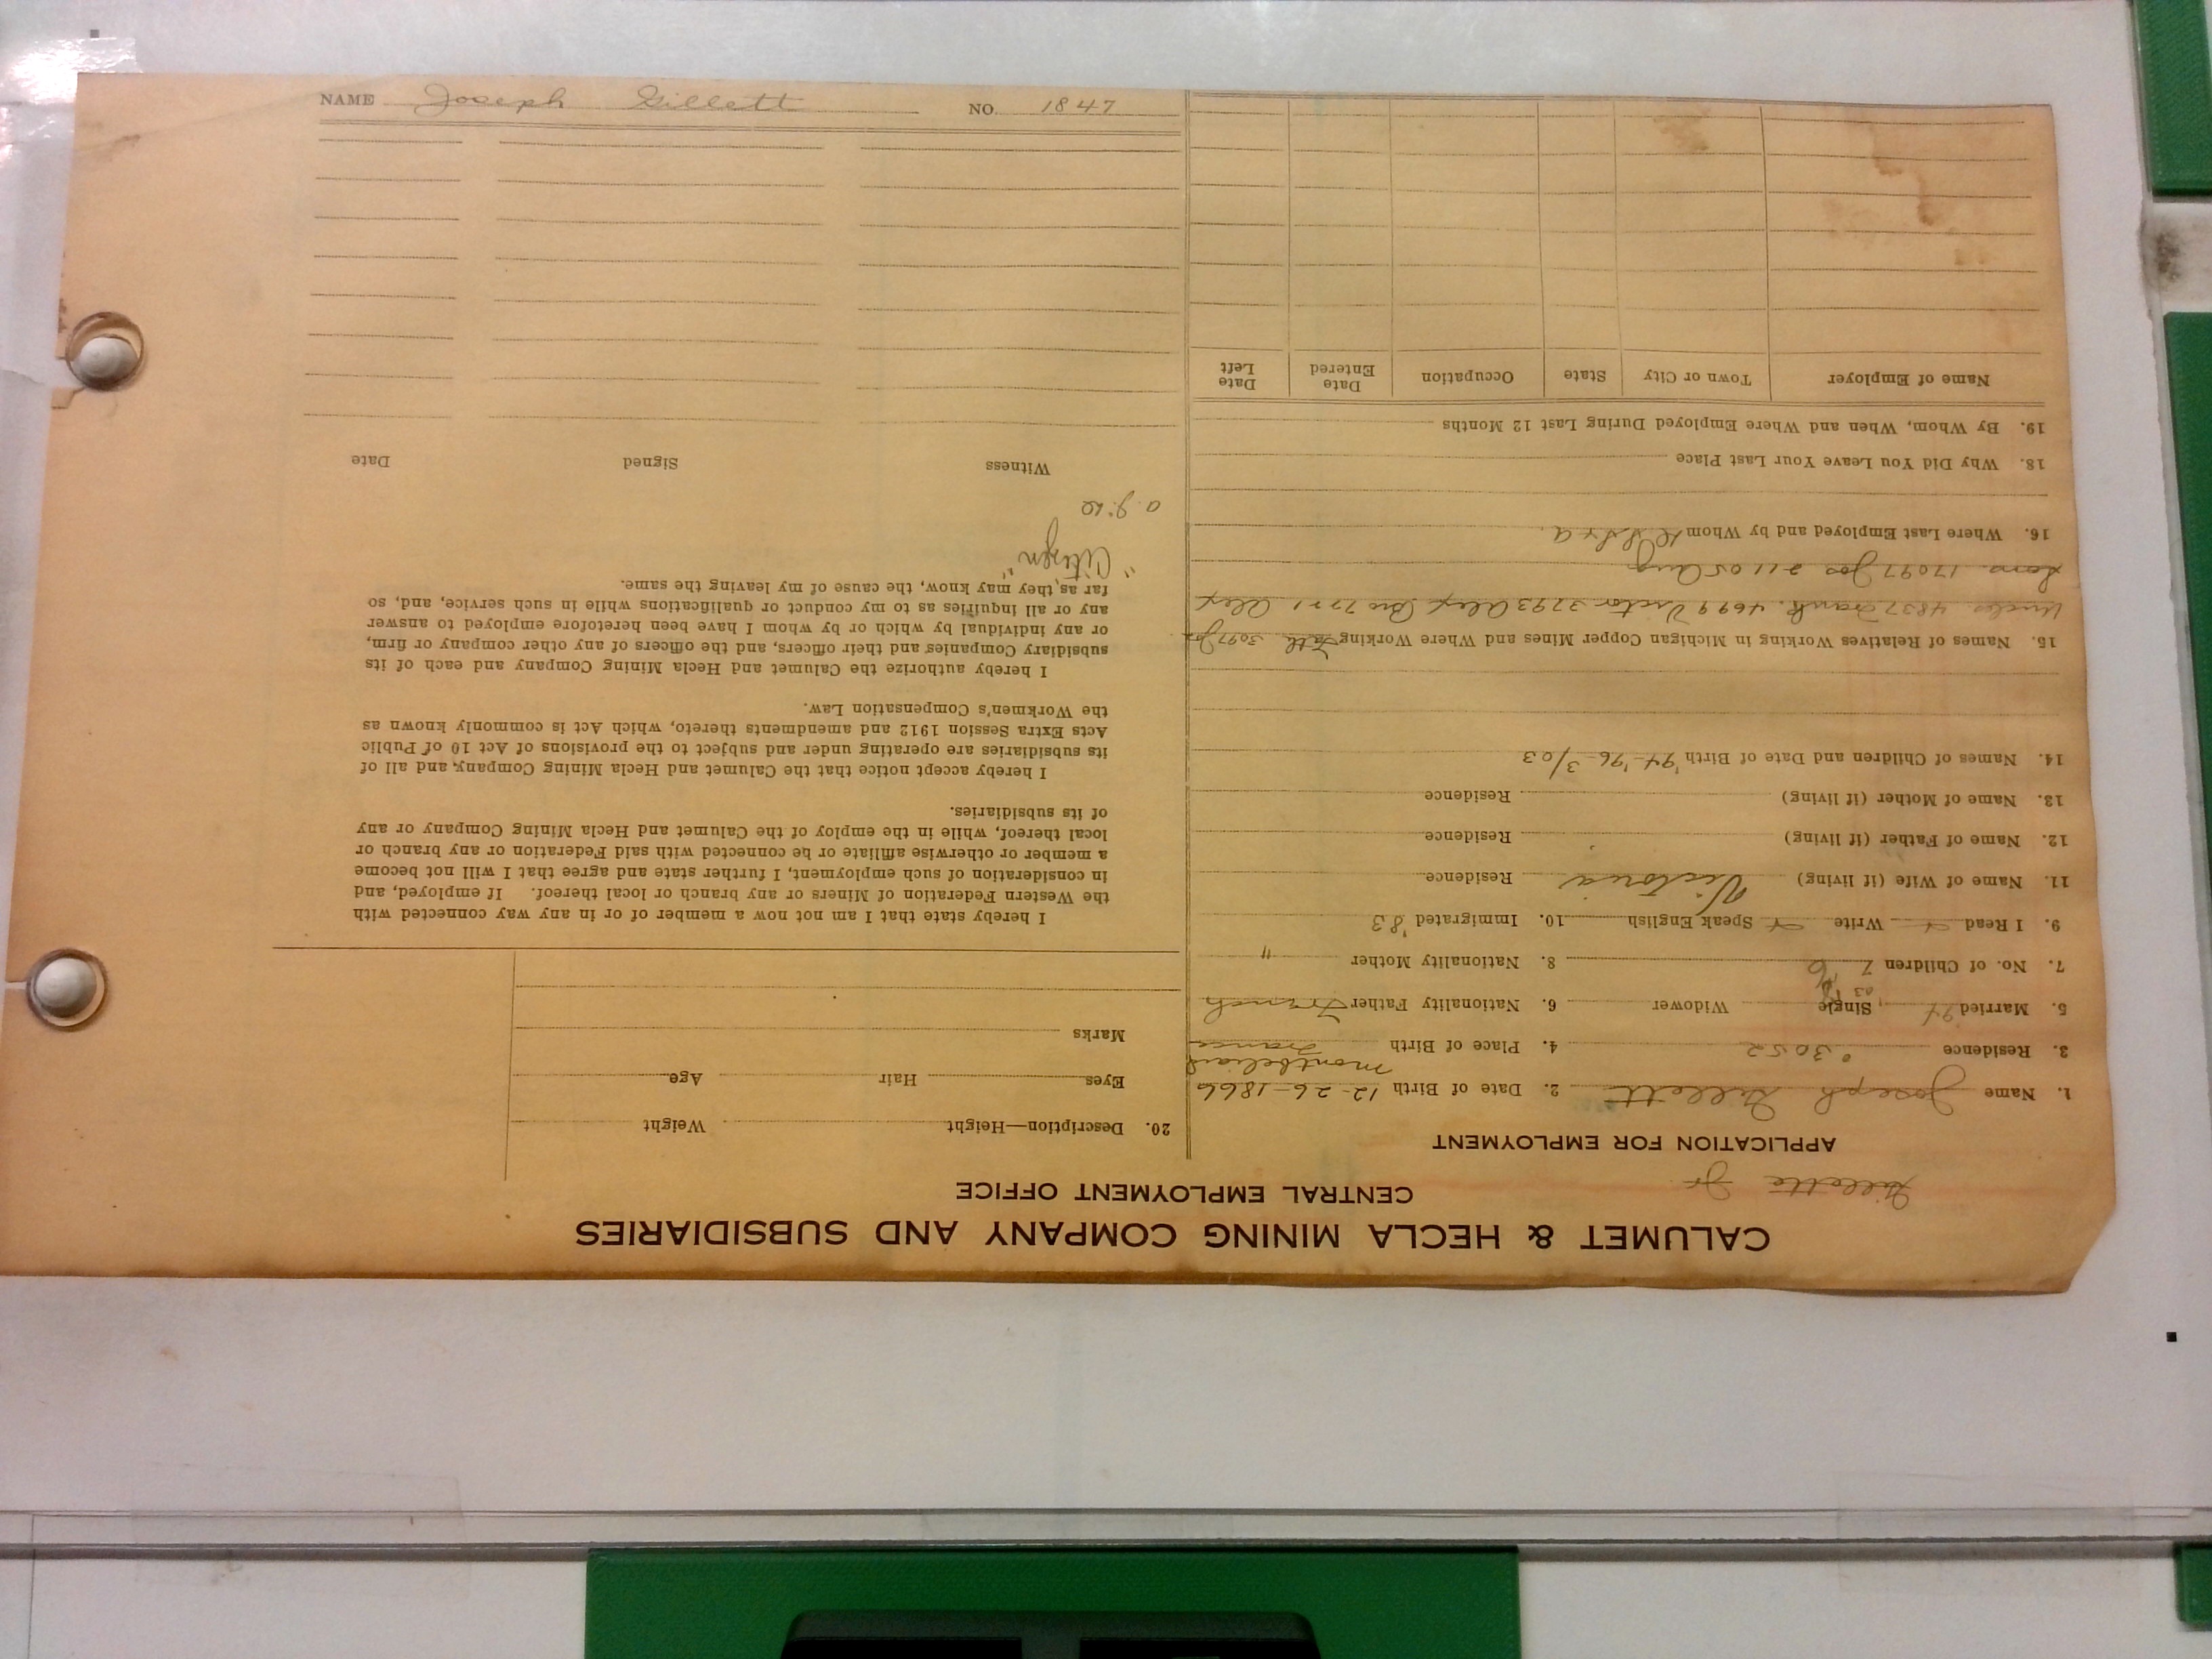 CALUMET & HECLA MINING COMPANY AND SUBSIDIARIES
CENTRAL EMPLOYMENT OFFICE
Gillette Jr
APPLICATION FOR EMPLOYMENT
1. Name Joseph Gillett 2. Date of Birth 12-26-1866
Montbeliard
3. Residence 3052 4. Place of Birth France
5. Married 94 Single Widower 6. Nationality Father French
03
7. No. of Children 7 6 8. Nationality Mother "
9. I Read Write Speak English 10. Immigrated '83
11. Name of Wife (if living) Victoria Residence
12. Name of Father (if living) Residence
13. Name of Mother (if living) Residence
14. Names of Children and Date of Birth '94-'96- 3/03
15. Names of Relatives Working in Michigan Copper Mines and Where Working Fath 3097 Jos
Uncles 4837 Frank. 4699 Victor 3793 Alex Bro 7771 Alex
Sons 17097 Jos 21105 Aug
16. Where Last Employed and by Whom
18. Why Did You Leave Your Last Place
19. By Whom, When and Where Employed During Last 12 Months
Name of Employer Town or City State Occupation Date Entered Date Left
20. Description—Height Weight
Eyes Hair Age
Marks
I hereby state that I am not now a member of or in any way connected with
the Western Federation of Miners or any branch or local thereof. If employed, and
in consideration of such employment, I further state and agree that I will not become
a member or otherwise affiliate or be connected with said Federation or any branch or
local thereof, while in the employ of the Calumet and Hecla Mining Company or any
of its subsidiaries.
I hereby accept notice that the Calumet and Hecla Mining Company, and all of
its subsidiaries are operating under and subject to the provisions of Act 10 of Public
Acts Extra Session 1912 and amendments thereto, which Act is commonly known as
the Workmen's Compensation Law.
I hereby authorize the Calumet and Hecla Mining Company and each of its
subsidiary Companies and their officers, and the officers of any other company or firm,
or any individual by which or by whom I have been heretofore employed to answer
any or all inquiries as to my conduct or qualifications while in such service, and, so
far as they may know, the cause of my leaving the same.
"Citizen"
Witness Signed Date
NAME Joseph Gillett NO. 1847